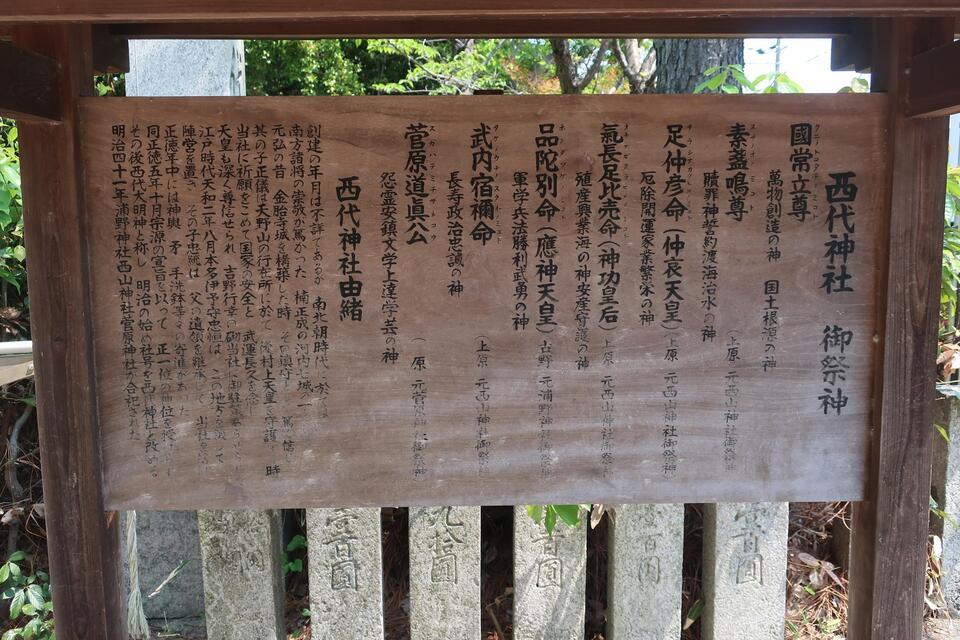 西代神社 御祭神
國常立尊
クニトコタチミコト
萬物創造の神 国土根源の神
素盞嗚尊
スサノオノミコト
贖罪神誓約渡海治水の神
(上原 元西山神社御祭神
足仲彦命(仲哀天皇)
厄除開運家業繁栄の神
(上原 元西山神社御祭神)
氣長足比売命(神功皇后)
殖産興業海の神安産守護の神
(上原 元西山神社御祭神
品陀別命(應神天皇)
軍学兵法勝利武勇の神
(古野 元浦野神社御祭神
武内宿禰命
長寿政治忠誠の神
(上原 元西山神社御祭神
菅原道真公
スガハラミチザネコウ
怨霊安鎮文学上達学芸の神
(原 元菅原神社御祭神
西代神社由緒
創建の年月は不詳であるが 南北朝時代に於ては
南方諸将の崇敬が篤かった 楠正成の河内七城の一
元弘の昔 金胎寺城を構築した時 その鎮守として篤く信じ
其の子正儀は天野山の行在所に於て 後村上天皇を守護の時
当社に祈願をこめて国家の安全と 武運長久を念じ
天皇も深く尊信せられ 吉野行幸の砌当社に御駐輦
江戸時代天和二年八月本多伊予守忠恒は この地方を
陣営を置き その子忠統は 父の遺領を継承して 出社を
正徳年中には神輿 矛 手洗鉢等々の寄進があった
同正徳五年十月宗源の宣旨を以って 正一位の神位を授
その後西代大明神と称し 明治の始め社号を西代神社と改め
明治四十一年浦野神社西山神社菅原神社を合祀された
壹百圓
九拾圓
百圓
壹百圓